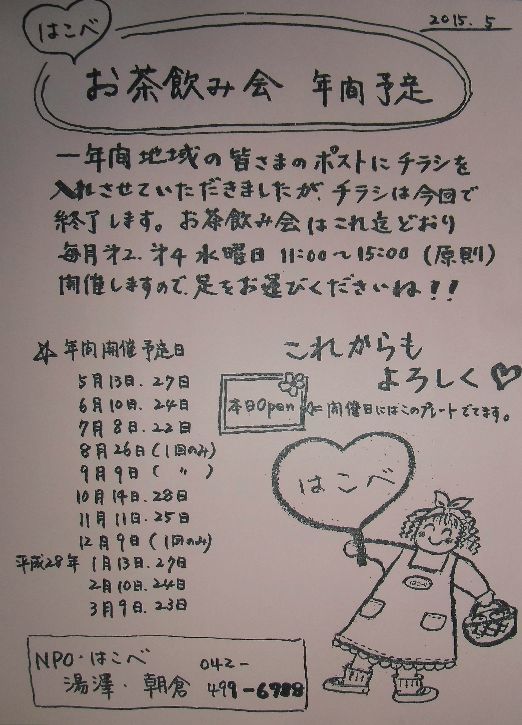 はこべ
2015.5
お茶飲み会 年間予定
一年間地域の皆さまのポストにチラシを
入れさせていただきましたが、チラシは今回で
終了します。お茶飲み会はこれ迄どおり
毎月才2、才4 水曜日 11:00〜15:00 (原則)
開催しますので、足をお運びくださいね!!
☆ 年間開催予定日
5月13日、27日
6月10日、24日
7月8日、22日
8月26日(1回のみ)
9月9日( 〃 )
10月14日、28日
11月11日、25日
12月9日(1回のみ)
平成28年 1月13日、27日
2月10日、24日
3月9日、23日
これからも
よろしく♡
本日Open ⇐開催日にはこのプレートでてます。
はこべ
はこべ
NPO・はこべ 042-
湯澤・朝倉 499-6788